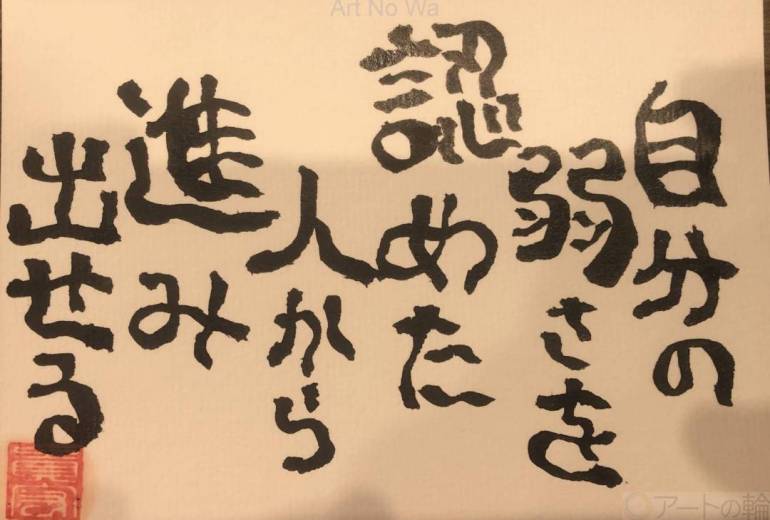 Art No Wa
自分の
弱さを
認めた
人から
進み
出せる
アートの輪